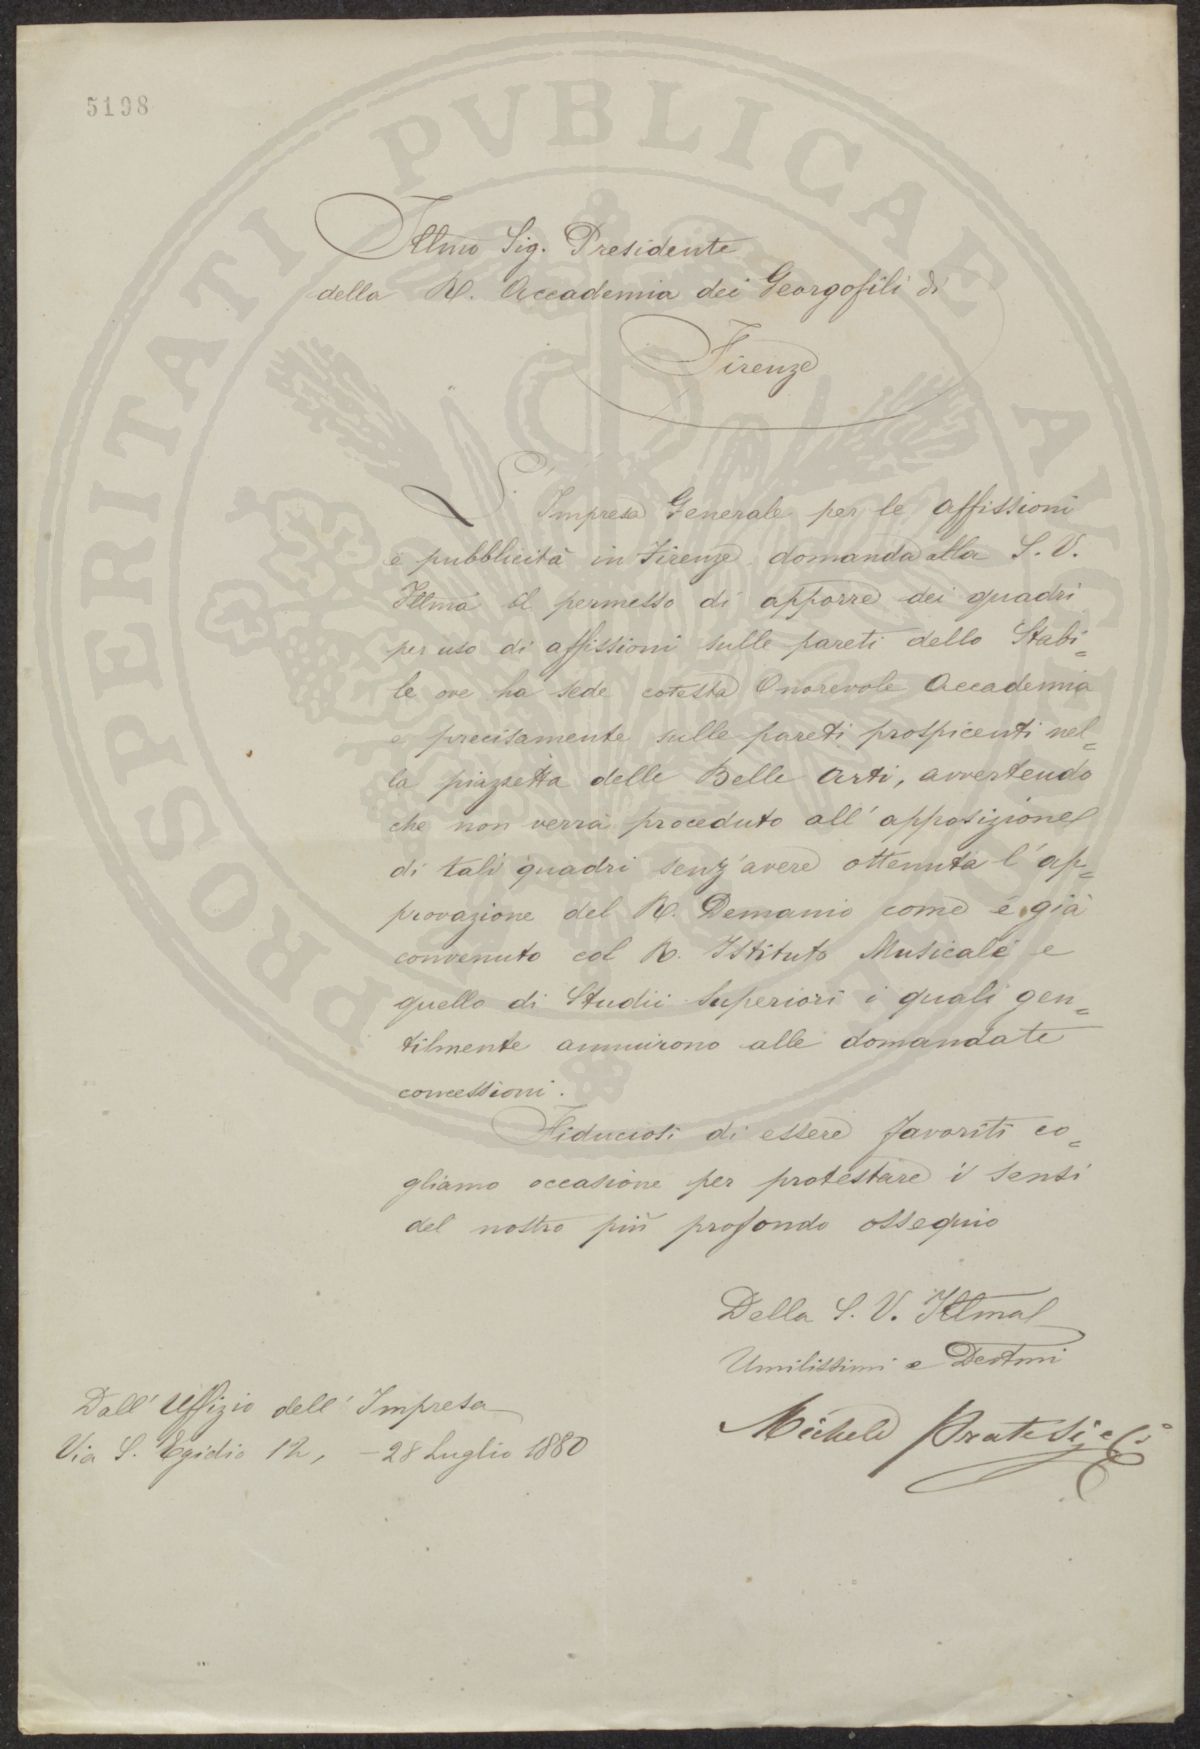 5198
PROSPERITATI PVBLICAE AVGENDAE
Illmo Sig. Presidente
della R. Accademia dei Georgofili di
Firenze
L'Impresa Generale per le affissioni
e pubblicità in Firenze domanda alla S. V.
Illma il permesso di apporre dei quadri
per uso di affissioni sulle pareti dello Stabi=
le ove ha sede cotesta Onorevole Accademia
e precisamente sulle pareti prospicenti nel=
la piazzetta delle Belle Arti, avvertendo
che non verrà proceduto all'apposizione
di tali quadri senz'avere ottenuta l'ap=
provazione del R. Demanio come è già
convenuto col R. Istituto Musicale e
quello di Studii Superiori i quali gen=
tilmente annuirono alle domandate
concessioni.
Fiduciosi di essere favoriti co=
gliamo occasione per protestare i sensi
del nostro più profondo ossequio
Della S. V. Illma
Umilissimi e Devtmi
Michele Pratesi e Ci
Dall'Uffizio dell'Impresa
Via S. Egidio 12, - 28 Luglio 1880